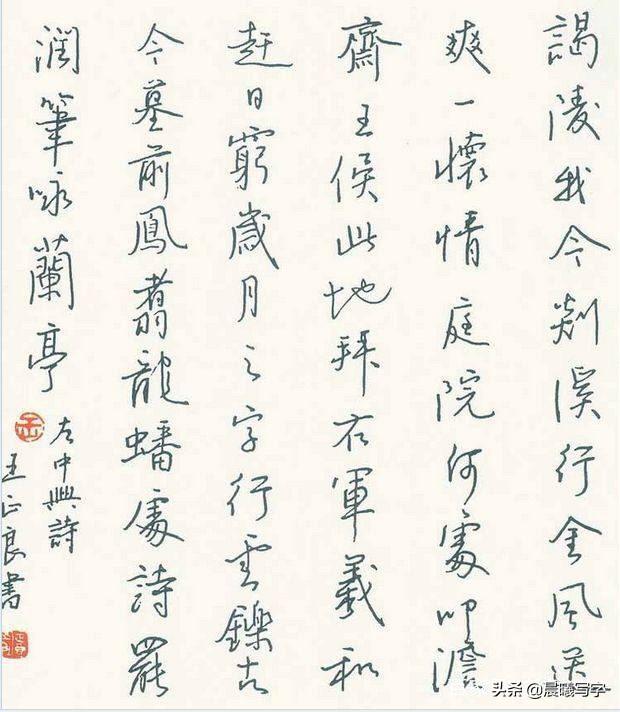 謁陵我今剡溪行金風送
爽一懷情庭院何處叩澹
齋王侯此地拜右軍羲和
赶日窮歲月之字行雲鑠古
今墓前鳳翥龍蟠處詩罷
潤筆咏蘭亭
左中興詩
王正良書
头条 @晨曦写字